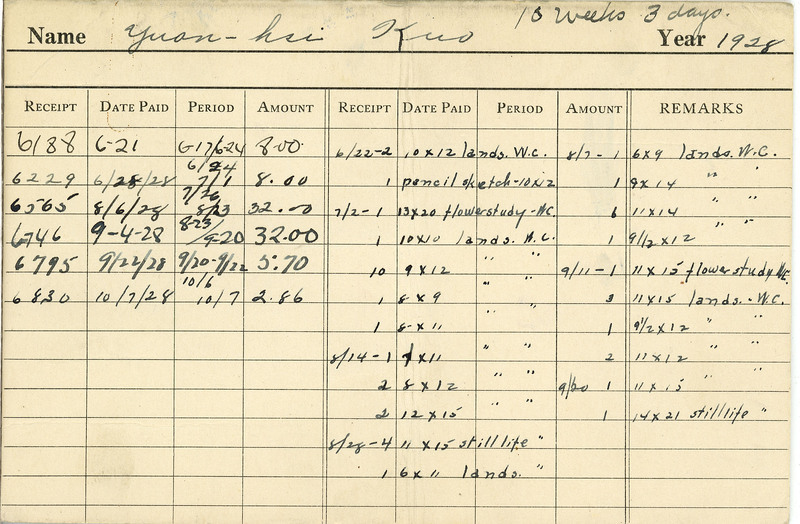 13 weeks 3 days.
Name Yuan-hsi Kuo Year 1928
RECEIPT DATE PAID PERIOD AMOUNT RECEIPT DATE PAID PERIOD AMOUNT REMARKS
6188 6-21 6-17/6-24 8.00 6/22-2 10x12 lands. W.C. 8/7-1 6x9 lands. W.C.
6229 6/28/28 6/24 7/1 8.00 1 pencil sketch-10x12 1 9x14 " "
6565 8/6/28 7/26 8/23 32.00 7/2-1 13x20 flower study-W.C. 6 11x14 " "
6746 9-4-28 8-23/9-20 32.00 1 10x10 lands. W.C. 1 9 1/2 x12 " "
6795 9/22/28 9/20-9/22 5.70 10 9x12 " " 9/11-1 11x15 flower study W.C.
6830 10/7/28 10/6 10/7 2.86 1 8x9 " " 3 11x15 lands.-W.C.
1 8x11 " " 1 9 1/2 x12 " "
8/14-1 9x11 " " 2 11x12 " "
2 8x12 " " 9/20 1 11x15 " "
2 12x15 " " 1 14x21 still life "
8/28-4 11x15 still life "
1 6x11 lands. "